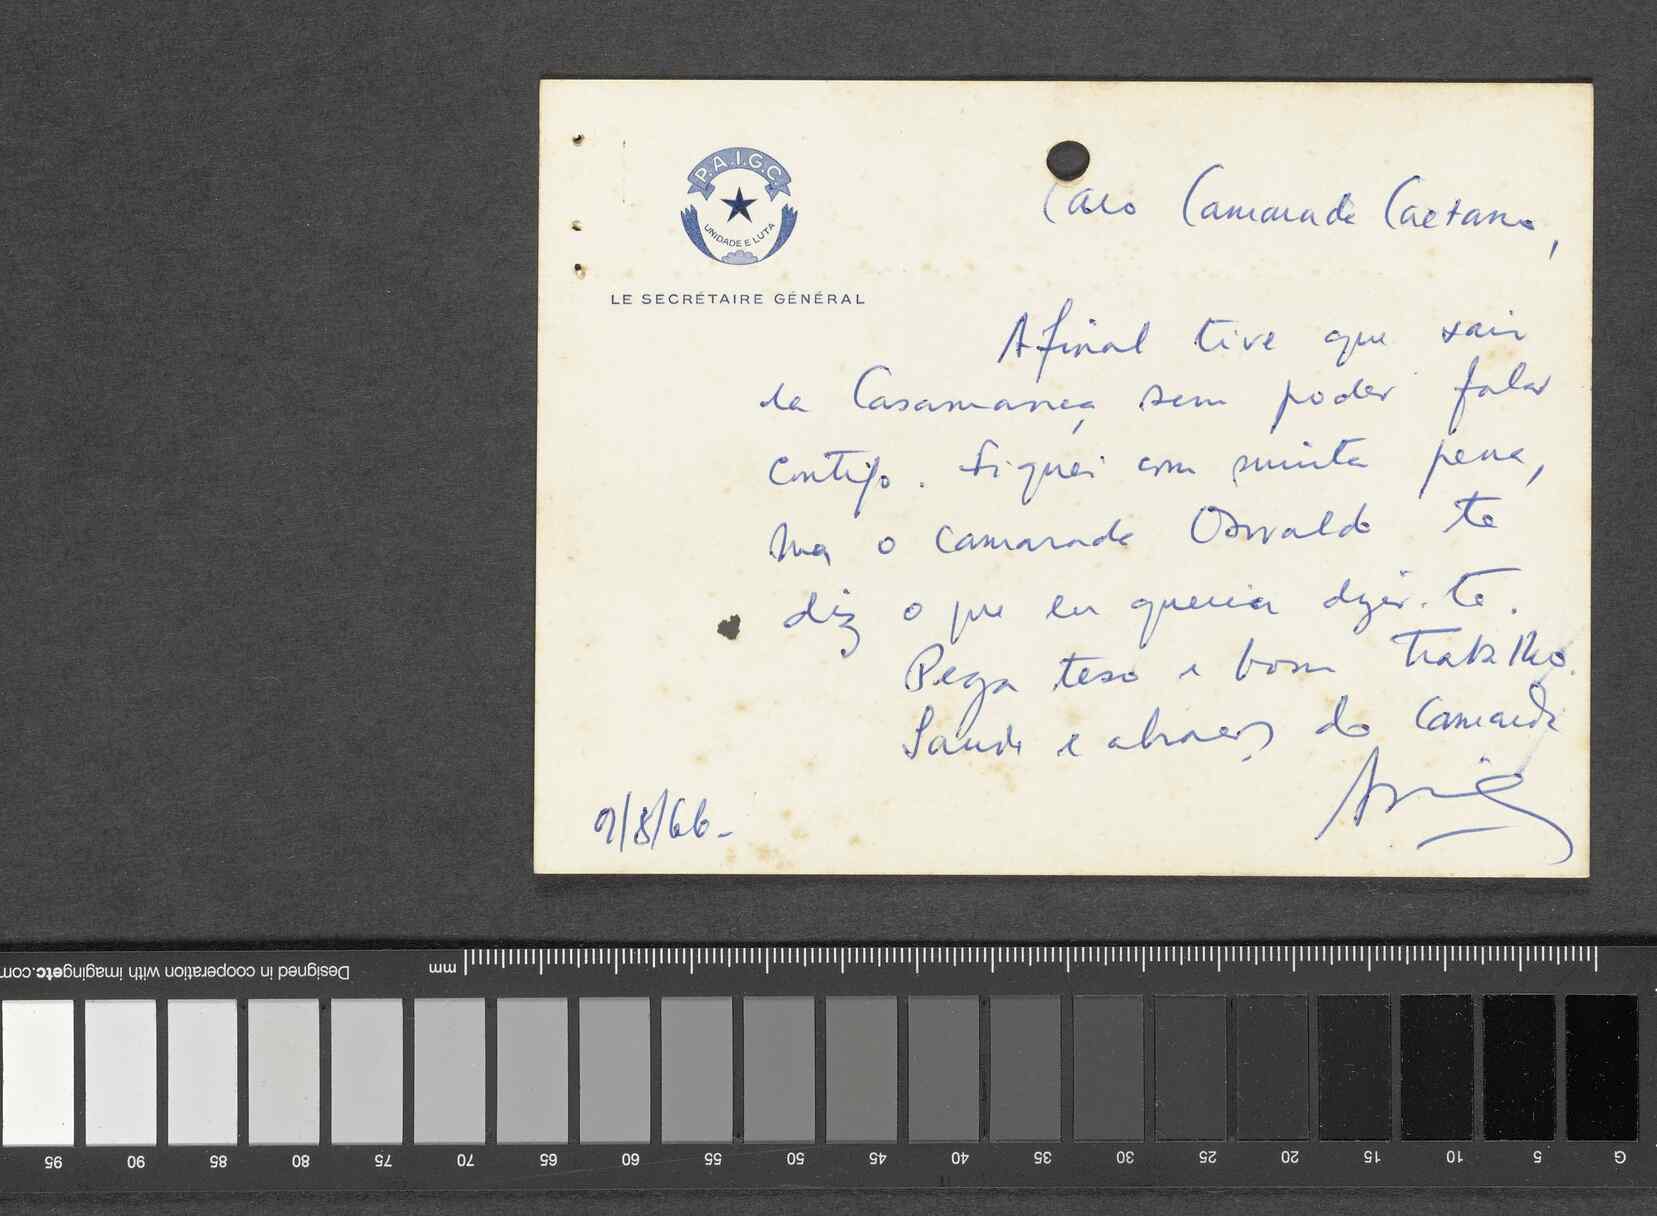 P.A.I.G.C.
UNIDADE E LUTA
LE SECRÉTAIRE GÉNÉRAL
Caro Camarada Caetano,
Afinal tive que sair
de Casamança sem poder falar
contigo. Fiquei com muita pena,
mas o camarada Osvaldo te
diz o que eu queria dizer-te.
Pega teso e bom trabalho.
Saude e abraços do Camarada
9/8/66-
Designed in cooperation with imagingetc.com
mm
95 90 85 80 75 70 65 60 55 50 45 40 35 30 25 20 15 10 5 G